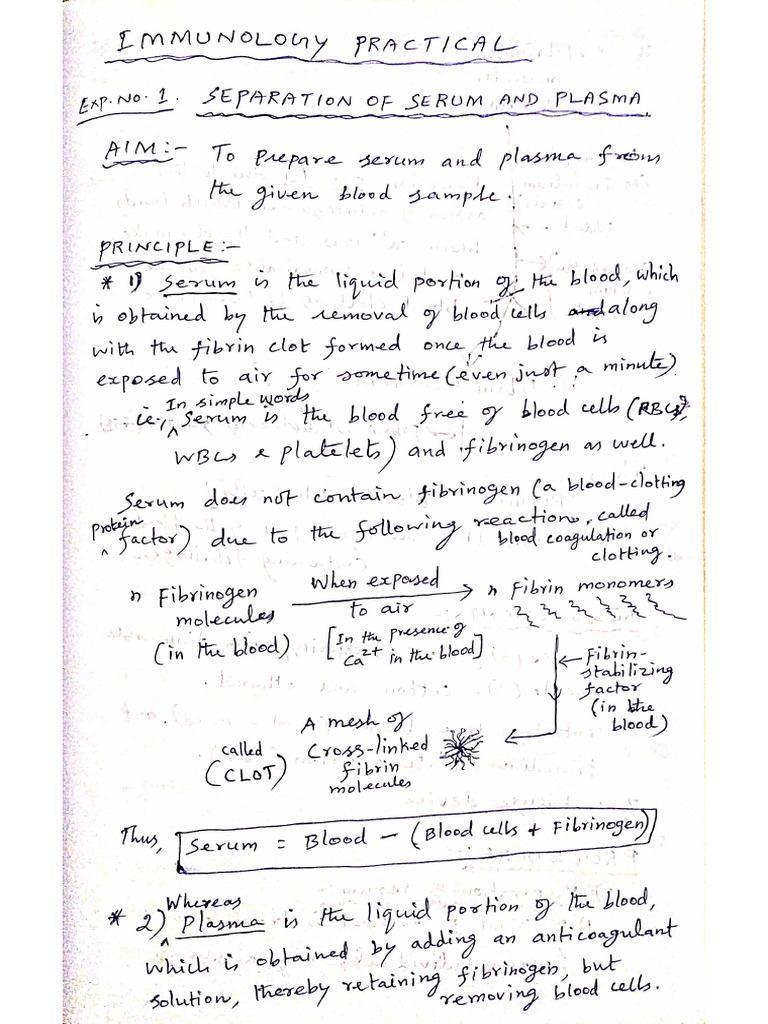 IMMUNOLOGY PRACTICAL
EXP. NO. 1. SEPARATION OF SERUM AND PLASMA
AIM:- To prepare serum and plasma from
the given blood sample.
PRINCIPLE:-
* 1) Serum is the liquid portion of the blood, which
is obtained by the removal of blood cells and along
with the fibrin clot formed once the blood is
exposed to air for sometime (even just a minute)
In simple words
ie., ^ Serum is the blood free of blood cells (RBCs,
WBCs & platelets) and fibrinogen as well.
Serum does not contain fibrinogen (a blood-clotting
protein
^ factor) due to the following reaction, called
blood coagulation or
clotting.
n Fibrinogen
molecules
(in the blood)
When exposed
to air
[In the presence of
Ca2+ in the blood]
n Fibrin monomers
Fibrin-
stabilizing
factor
(in the
blood)
A mesh of
cross-linked
fibrin
molecules
called
(CLOT)
Thus, Serum = Blood - (Blood cells + Fibrinogen)
Whereas
* 2) ^ Plasma is the liquid portion of the blood,
which is obtained by adding an anticoagulant
solution, thereby retaining fibrinogen, but
removing blood cells.